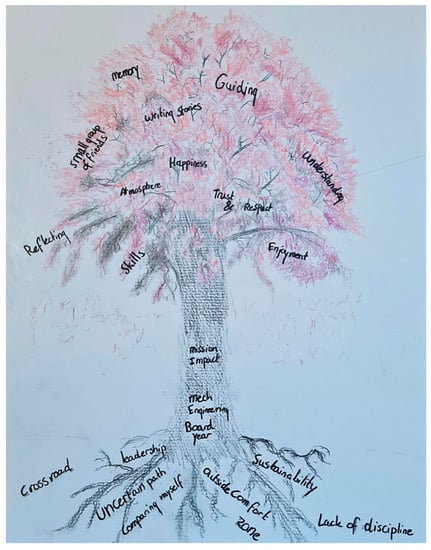 memory
Guiding
Writing stories
small group
of friends
Happiness
Understanding
Atmosphere
Trust
& Respect
Reflecting
Skills
Enjoyment
mission
Impact
mech
Engineering
Board
year
leadership
Crossroad
Uncertain path
Comparing myself
outside comfort
zone
Sustainability
Lack of discipline